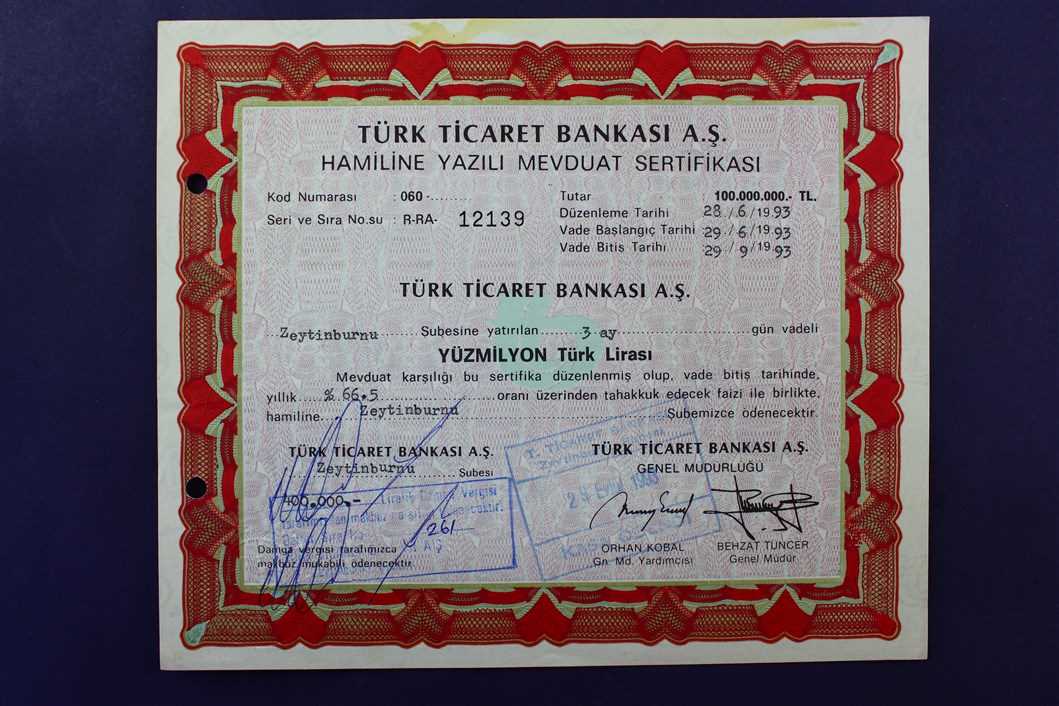 TÜRK TİCARET BANKASI A.Ş.
HAMİLİNE YAZILI MEVDUAT SERTİFİKASI
Kod Numarası : 060 -.........
Seri ve Sıra No.su : R-RA- 12139
Tutar : 100.000.000.- TL.
Düzenleme Tarihi 28./6/1993
Vade Başlangıç Tarihi :29./6/1993
Vade Bitiş Tarihi :29/9/1993
TÜRK TİCARET BANKASI A.Ş.
...Zeytinburnu........ Şubesine yatırılan........3 ay...........................gün vadeli
YÜZMİLYON Türk Lirası
Mevduat karşılığı bu sertifika düzenlenmiş olup, vade bitiş tarihinde,
yıllık.....% 66.5........................oranı üzerinden tahakkuk edecek faizi ile birlikte,
hamiline........Zeytinburnu..........................................Şubemizce ödenecektir.
TÜRK TİCARET BANKASI A.Ş.
Zeytinburnu.......... Şubesi
TÜRK TİCARET BANKASI A.Ş.
GENEL MÜDÜRLÜĞÜ
400.000.- Liralık Damga Vergisi
261
Damga vergisi tarafımızca
makbuz mukabili ödenecektir.
29 Eylül 1993
ORHAN KOBAL
Gn. Md. Yardımcısı
BEHZAT TUNCER
Genel Müdür